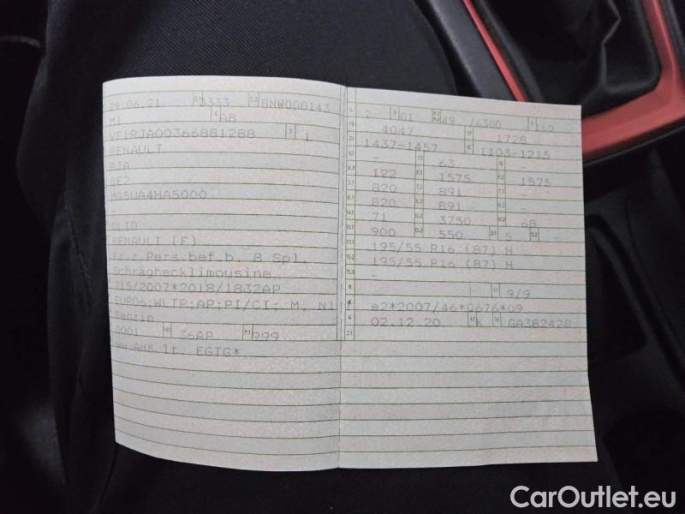 09.06.21 3333 BNW000143
M1 AB
VF1RJA00366881288 1
RENAULT
RJA
BE2
MG5UA4HA5000
-
CLIO
RENAULT (F)
Fz.z.Pers.bef.b. 8 Spl.
Schräghecklimousine
715/2007*2018/1832AP
EURO6;WLTP;AP;PI/CI; M, N1
Benzin
0001 36AP 999
EGTG*
2 81 49 /6300
4047 1728
1437-1457 1103-1215
- 63 -
122 1575 1575
820 891 -
820 891 -
71 3750 68
900 550 5 -
195/55 R16 (87) H
195/55 R16 (87) H
-
- 9/9
e2*2007/46*0676*09
02.12.20 K
CarOutlet.eu